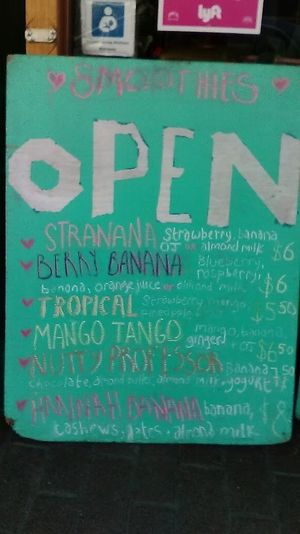 lyft
SMOOTHIES
OPEN
STRANANA strawberry, banana
OJ or almond milk $6
BERRY BANANA Blueberry,
raspberry,
banana, orange juice or almond milk $6
TROPICAL Strawberry, mango,
pineapple $5.50
MANGO TANGO mango, banana,
ginger + OJ $6.50
NUTTY PROFESSOR Banana 7.50
chocolate, almond butter, almond milk, yogurt
HANNAH BANANA banana, $8
cashews, dates, almond milk